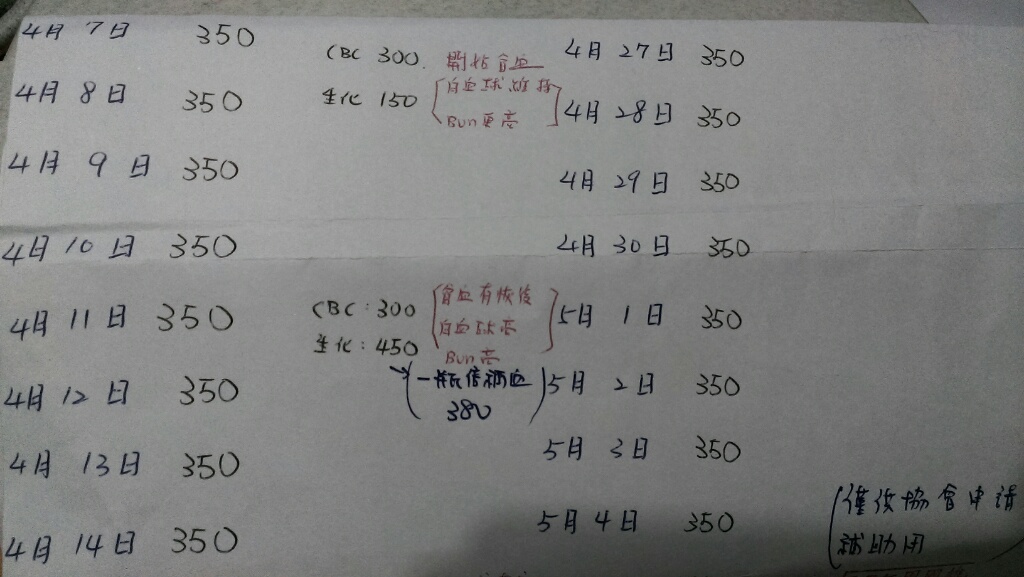 4月 7日 350
4月 8日 350
4月 9日 350
4月 10日 350
4月 11日 350
4月 12日 350
4月 13日 350
4月 14日 350
CBC 300. 開始貧血
生化 150 白血球維持
Bun更高
CBC:300 貧血有恢復
生化:450 白血球高
Bun高
一瓶倍補血
380
4月 27日 350
4月 28日 350
4月 29日 350
4月 30日 350
5月 1日 350
5月 2日 350
5月 3日 350
5月 4日 350
(僅供協會申請
補助用